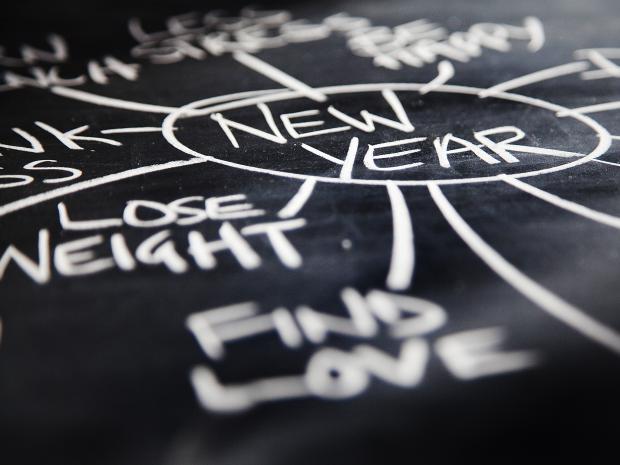 LESS
STRESS
BE
HAPPY
NEW
YEAR
LOSE
WEIGHT
FIND
LOVE